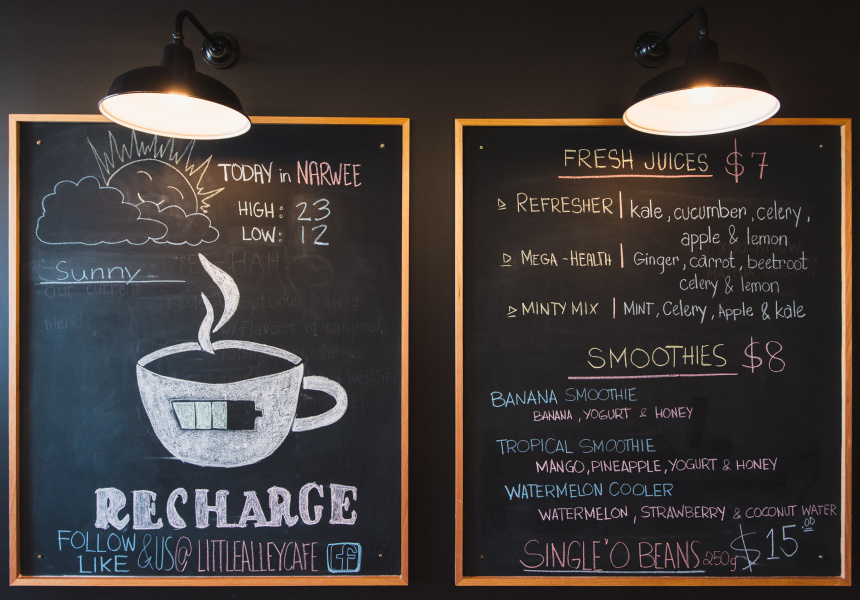 TODAY in NARWEE
HIGH: 23
LOW: 12
Sunny
our current
blend
flavours of caramel,
RECHARGE
FOLLOW & US @ LITTLEALLEYCAFE f
LIKE
FRESH JUICES $7
REFRESHER | kale, cucumber, celery,
apple & lemon
MEGA-HEALTH | Ginger, carrot, beetroot
celery & lemon
MINTY MIX | MINT, Celery, Apple & kale
SMOOTHIES $8
BANANA SMOOTHIE
BANANA, YOGURT & HONEY
TROPICAL SMOOTHIE
MANGO, PINEAPPLE, YOGURT & HONEY
WATERMELON COOLER
WATERMELON, STRAWBERRY & COCONUT WATER
SINGLE'O BEANS 250g $15.00